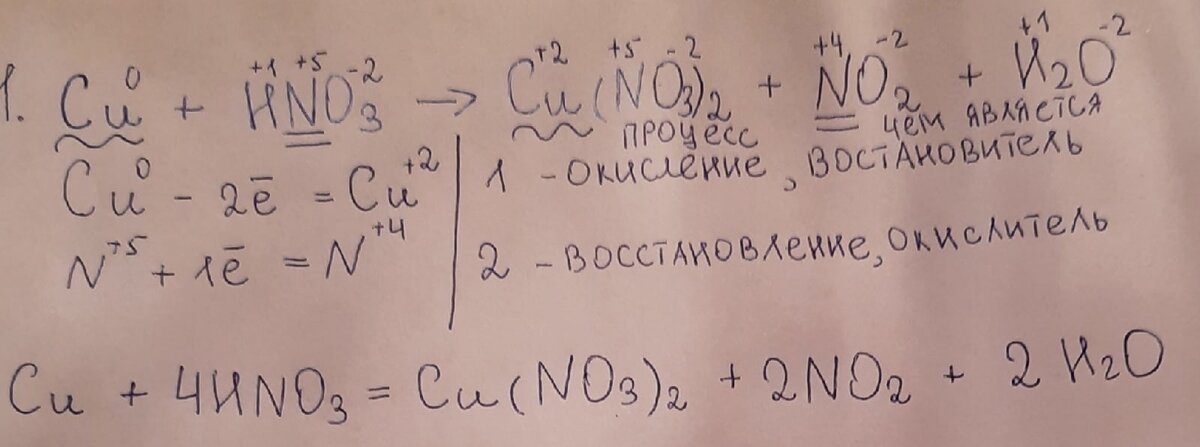 1. Cu⁰ + H⁺¹N⁺⁵O₃⁻² → Cu⁺²(N⁺⁵O₃⁻²)₂ + N⁺⁴O₂⁻² + H₂⁺¹O⁻²
процесс чем является
Cu⁰ - 2ē = Cu⁺² | 1 - окисление, востановитель
N⁺⁵ + 1ē = N⁺⁴ | 2 - восстановление, окислитель
Cu + 4HNO₃ = Cu(NO₃)₂ + 2NO₂ + 2H₂O